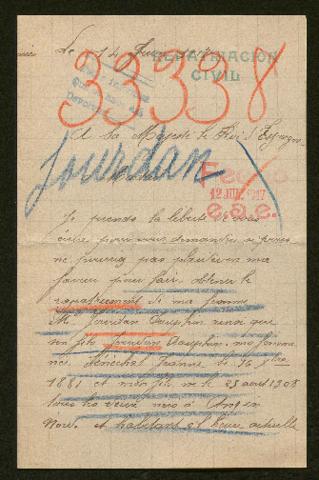 Le 14 Juin
REPATRIACION
CIVIL
33338
A Sa Majesté le Roi d'Espagne
Jourdan
Fecho
12 JUN. 1917
Je prends la liberté de vous
écrire pour vous demander si vous
ne pourriez pas plaider en ma
faveur pour faire obtenir le
rapatriement de ma femme
Mme Jourdan Dauphin ainsi que
son fils Jourdan Dauphin, ma femme
née Sénéchal Jeanne le 16
1881 et mon fils né le 23 avril 1908
tous
Nord. et habitant à l'heure actuelle